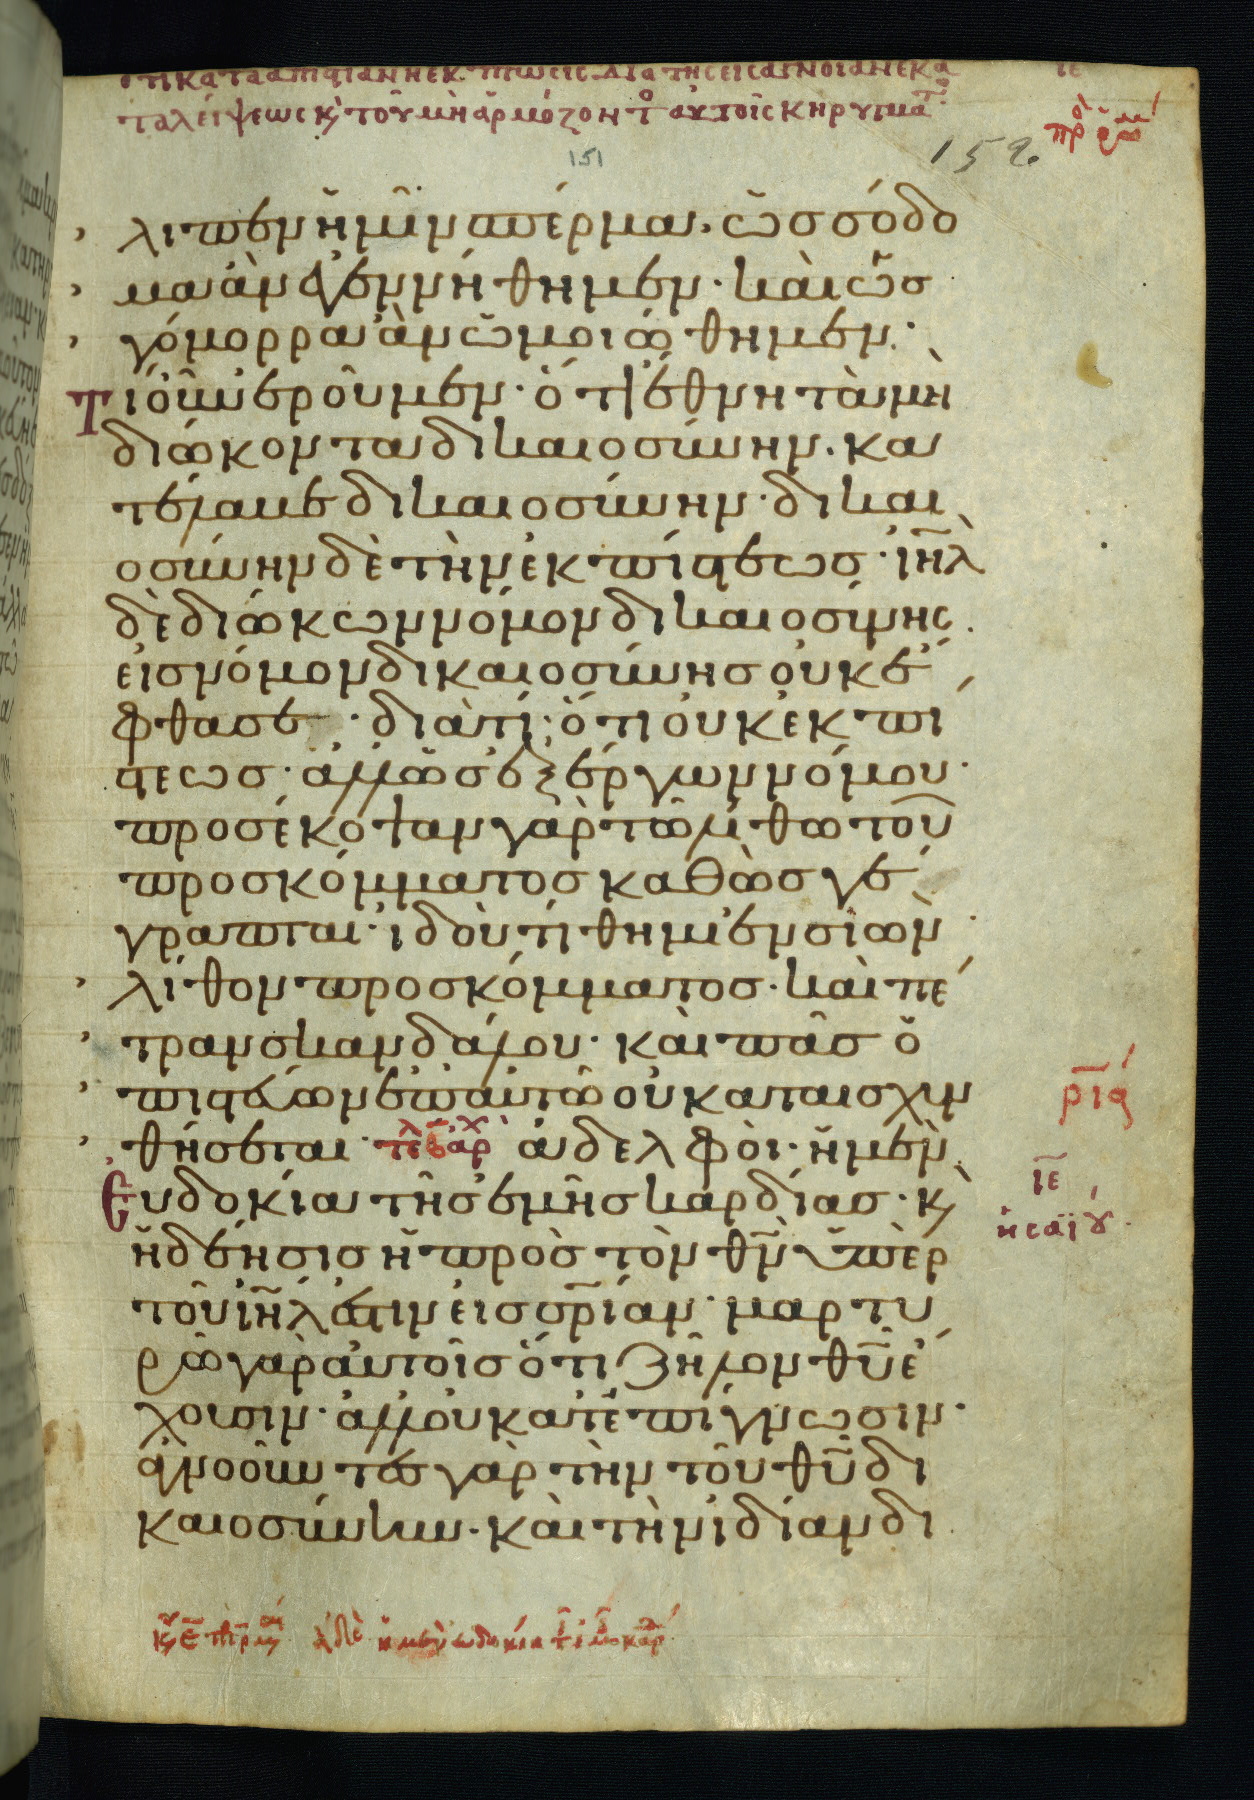 ὅτι κατὰ ἀπιστίαν ἡ ἔκπτωσις διὰ τῆς εἰς ἄγνοιαν ἐκα
ταλείψεως κ τοῦ μὴ ἁρμόζοντο αὐτοῖς κηρυγμα
151
152
λιπεν ἡμῖν σπέρμα· ὡς σόδο
μα ἂν ἐγεννήθημεν· καὶ ὡς
γόμορρα ἂν ὡμοιώθημεν·
Τί οὖν ἐροῦμεν· ὅτι ἔθνη τὰ μὴ
διώκοντα δικαιοσύνην· κα
τέλαβε δικαιοσύνην· δικαι
οσύνην δὲ τὴν ἐκ πίστεως· ιηλ
δὲ διώκων νόμον δικαιοσύνης
εἰς νόμον δικαιοσύνης οὐκ ἔ
φθασε· διὰ τί; ὅτι οὐκ ἐκ πί
στεως· ἀλλ' ὡς ἐξ ἔργων νόμου·
προσέκοψαν γὰρ τῶ λίθω τοῦ
προσκόμματος καθὼς γέ
γραπται· ἰδοὺ τίθημι ἐν σιὼν
λίθον προσκόμματος· καὶ πέ
τραν σκανδάλου· καὶ πᾶς ὁ
πιστεύων ἐπ' αὐτῶ οὐ καταισχυν
θήσεται τε ἀρ ἀδελφοὶ· ἡ μὲν
Εὐδοκία τῆς ἐμῆς καρδίας· κ
ἡ δέησις ἡ πρὸς τὸν θν ὑπὲρ
τοῦ ιηλ ἐστιν εἰς σριαν· μαρτυ
ρῶ γὰρ αὐτοῖς ὅτι ζῆλον θυ ἔ
χουσιν· ἀλλ' οὐ κατ' ἐπίγνωσιν·
ἀγνοοῦντες γὰρ τὴν τοῦ θυ δι
καιοσύνην· καὶ τὴν ἰδίαν δι
ιε
ησαΐου